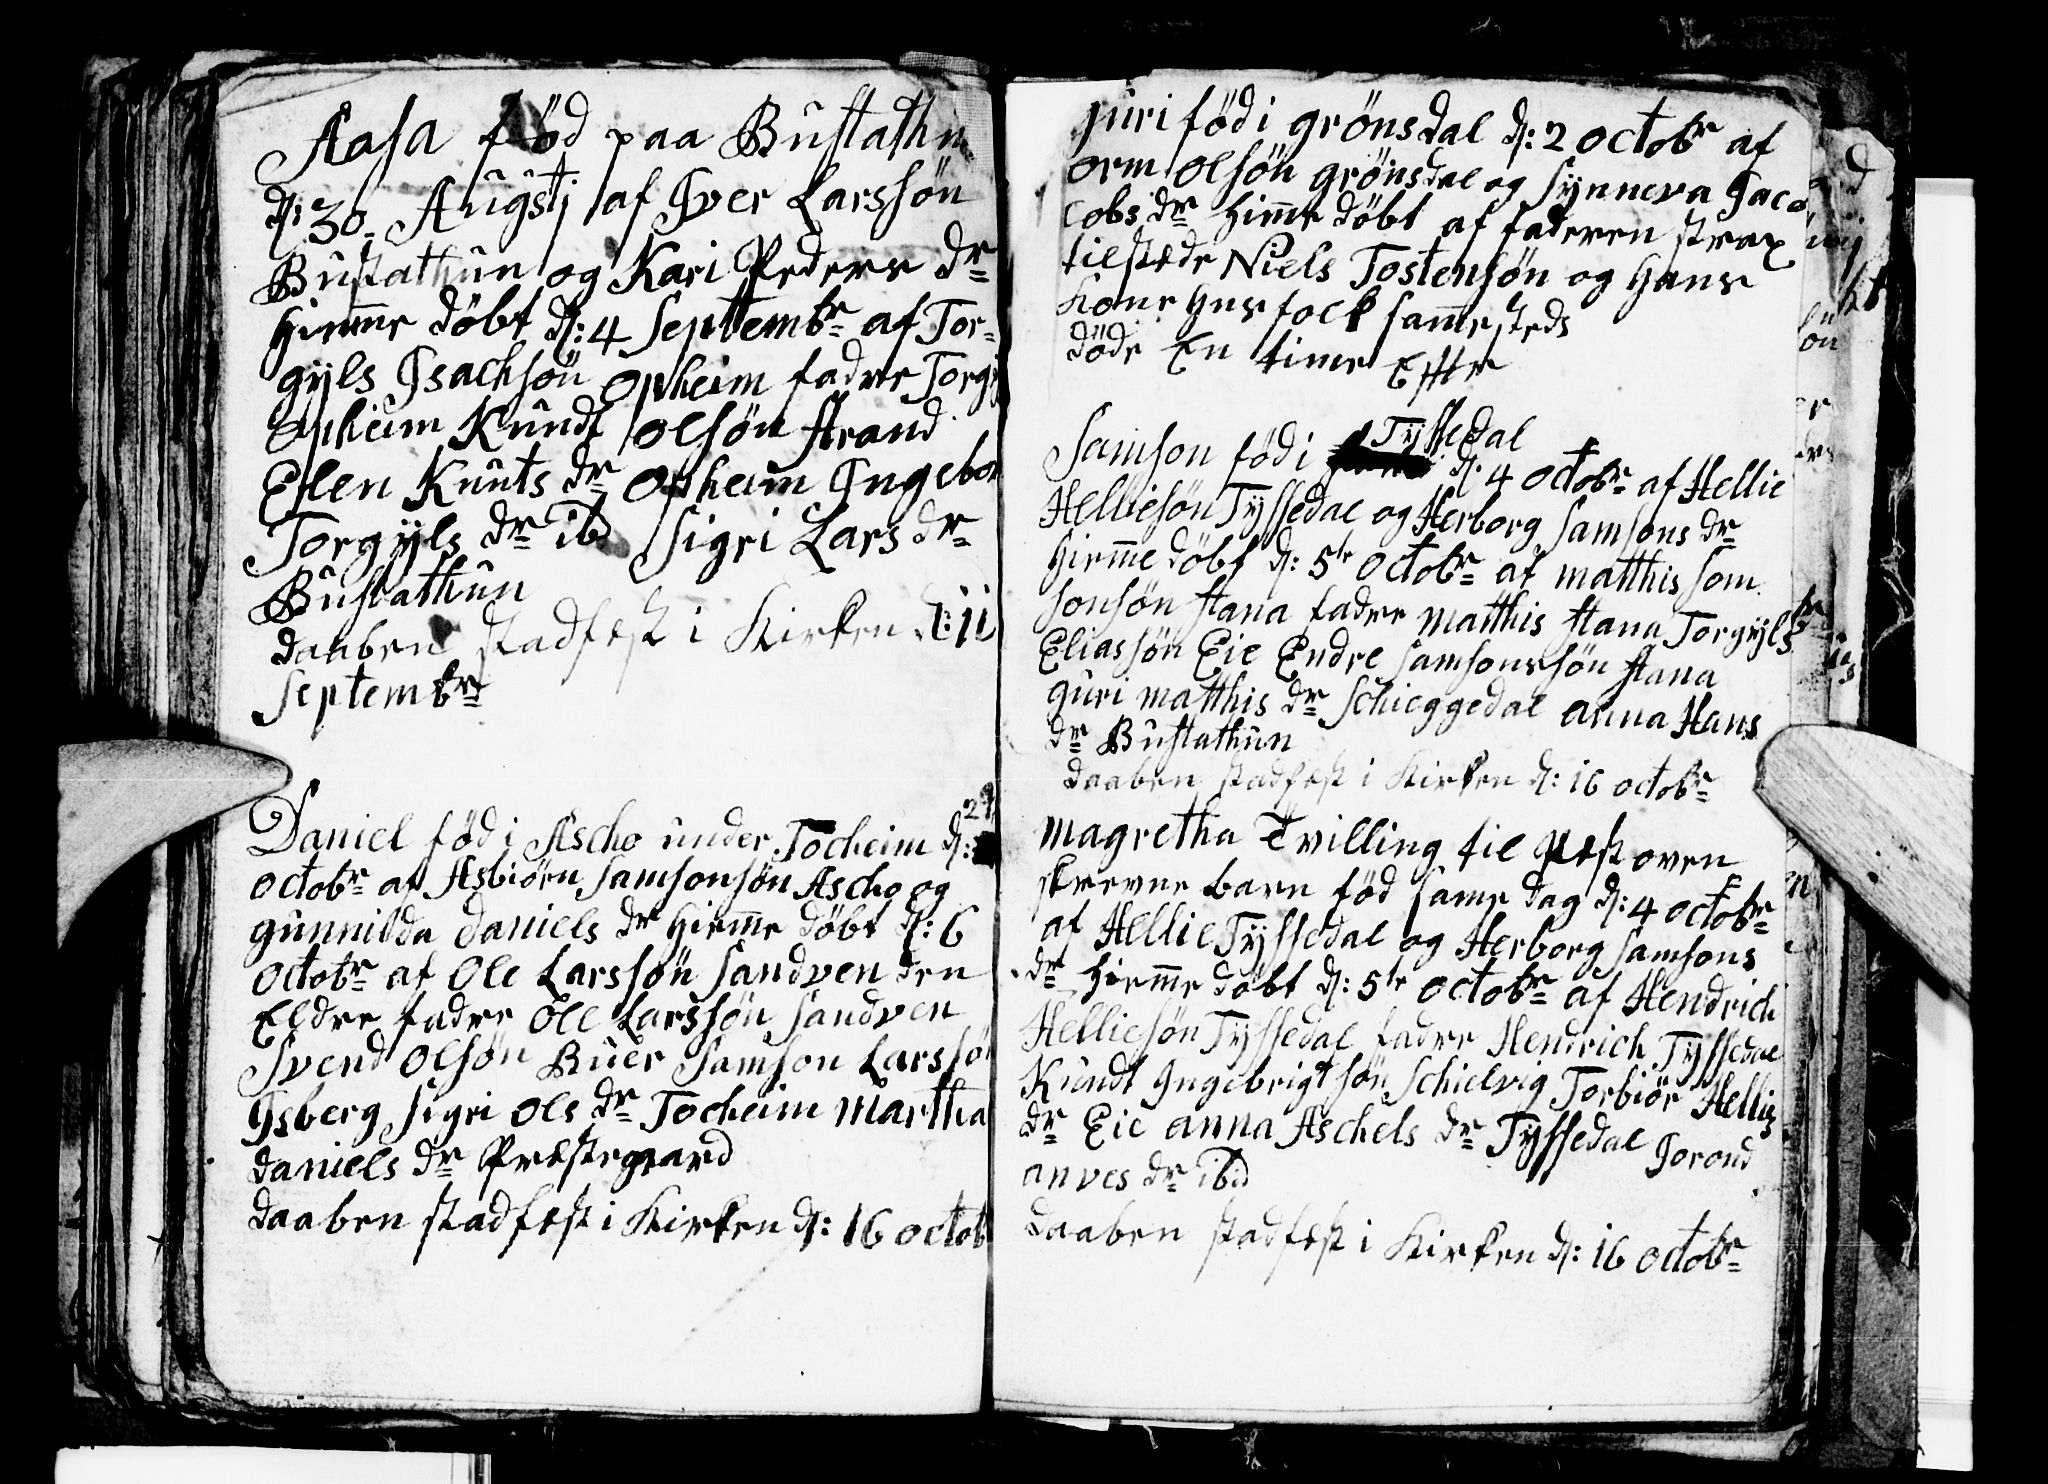 Aasa fød paa Bustathun
d: 30 Augustj af Iver Larssøn
Bustathun og Kari Peders dr
hiemme døbt d: 4 Septembr af Tor-
gyls Isachsøn Opheim fadre Torgyls
Opheim Knudt Olsøn Strand
Elen Knuts dr Opheim Ingebor
Torgyls dr ibd Sigri Lars dr
Bustathun
daaben stadfest i Kirken d: 11
Septembr
Daniel fød i Ascho under Tocheim d: 2
octobr af Asbiørn Samsonsøn Ascho og
gunnilda Daniels dr hiemme døbt d: 6
octobr af Ole Larssøn Sandven den
Eldre fadre Ole Larssøn Sandven
Svend Olsøn Buer Samson Larssøn
Isberg Sigri Ols dr Tocheim Martha
Daniels dr Præstegaard
daaben stadfest i Kirken d: 16 octob
guri fød i grønsdal d: 2 octobr af
orm olsøn grønsdal og Synneva Jaco
cobs dr hieme døbt af faderen strax
tilstede Niels Tostensøn og hans
kone husfolk sammesteds
døde En time Efter
Samson fød i Tyssedal d. 4 octobr af Hellie
Helliesøn Tyssedal og Herborg Samsons dr
hiemme døbt d: 5te octobr af matthis Som
sonsøn Stana fadre matthis Stana Torgyls
Eliassøn Eie Endre Samsonssøn Stana
guri matthis dr Schieggedal anna Hans
dr Bustathun
daaben stadfest i Kirken d: 16 octobr
magretha Tvilling til Næst oven
skrevne barn fød same dag d: 4 octobr
af Hellie Tyssedal og Herborg Samsons
dr hiemme døbt d: 5te octobr af Hendrich
Helliesøn Tyssedal fadre Hendrich Tyssedal
Kundt Ingebrigtsøn Schielvig Torbiør Hellies
dr Eie anna Aschels dr Tyssedal Jorond
anves dr ibid
daaben stadfest i Kirken d: 16 octobr